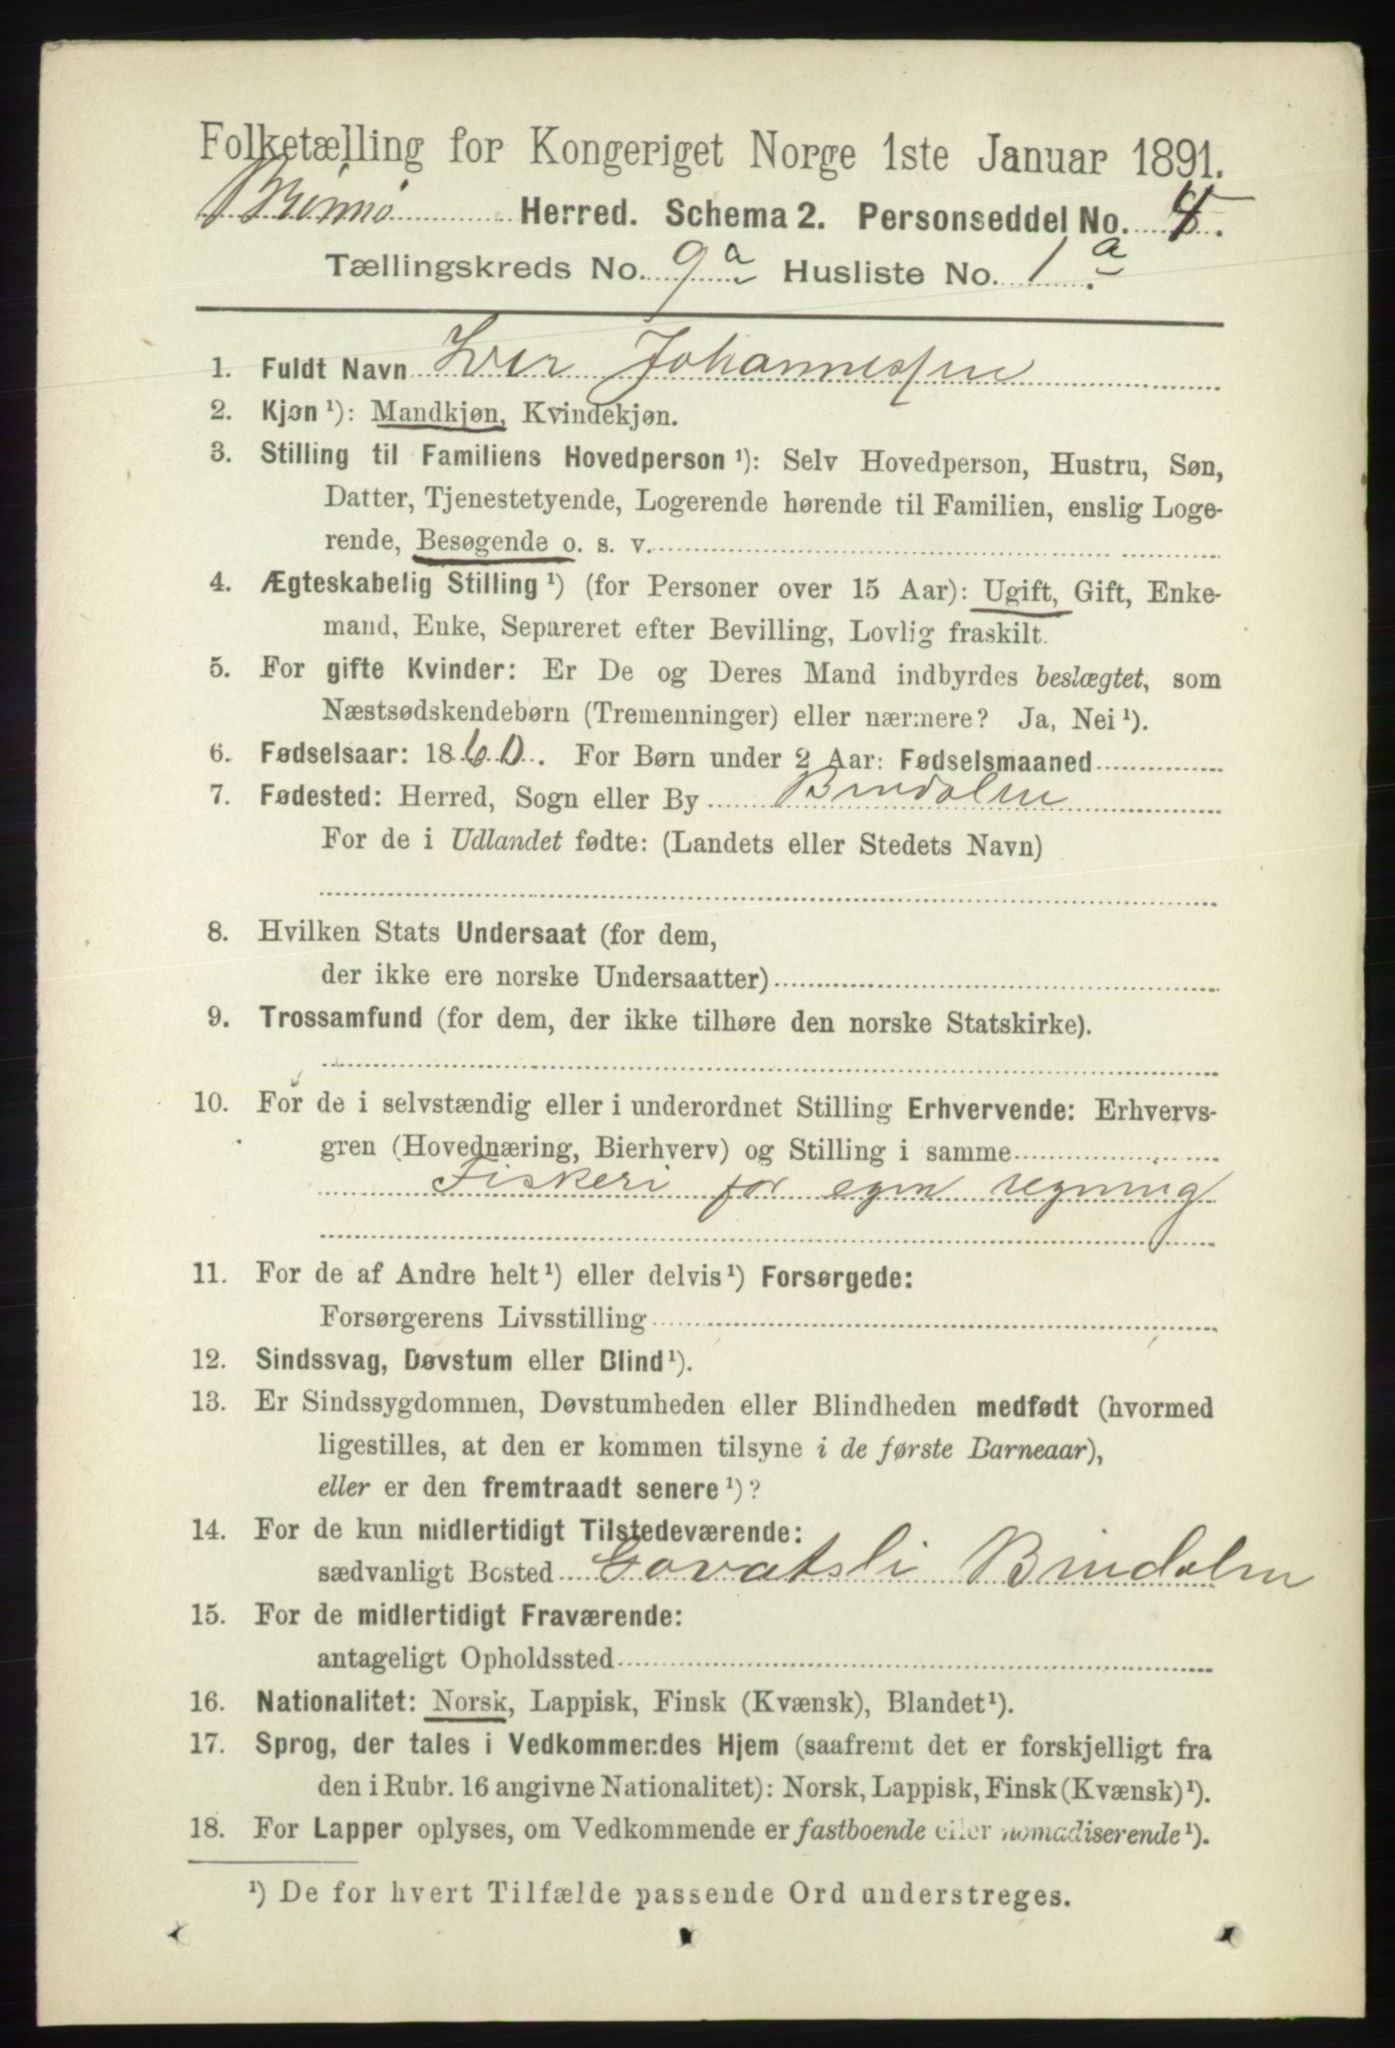 Folketælling for Kongeriget Norge 1ste Januar 1891.
Brønnø Herred. Schema 2. Personseddel No. 4.
Tællingskreds No. 9a Husliste No. 1a.
1. Fuldt Navn Iver Johannessen
2. Kjøn¹): Mandkjøn, Kvindekjøn.
3. Stilling til Familiens Hovedperson¹): Selv Hovedperson, Hustru, Søn,
Datter, Tjenestetyende, Logerende hørende til Familien, enslig Loge-
rende, Besøgende o. s. v.
4. Ægteskabelig Stilling¹) (for Personer over 15 Aar): Ugift, Gift, Enke-
mand, Enke, Separeret efter Bevilling, Lovlig fraskilt.
5. For gifte Kvinder: Er De og Deres Mand indbyrdes beslægtet, som
Næstsødskendebørn (Tremenninger) eller nærmere? Ja, Nei¹).
6. Fødselsaar: 1860. For Børn under 2 Aar: Fødselsmaaned
7. Fødested: Herred, Sogn eller By Bindalen
For de i Udlandet fødte: (Landets eller Stedets Navn)
8. Hvilken Stats Undersaat (for dem,
der ikke ere norske Undersaatter)
9. Trossamfund (for dem, der ikke tilhøre den norske Statskirke).
10. For de i selvstændig eller i underordnet Stilling Erhvervende: Erhvervs-
gren (Hovednæring, Bierhverv) og Stilling i samme
Fiskeri for egen regning
11. For de af Andre helt¹) eller delvis¹) Forsørgede:
Forsørgerens Livsstilling
12. Sindssvag, Døvstum eller Blind¹).
13. Er Sindssygdommen, Døvstumheden eller Blindheden medfødt (hvormed
ligestilles, at den er kommen tilsyne i de første Barneaar),
eller er den fremtraadt senere¹)?
14. For de kun midlertidigt Tilstedeværende:
sædvanligt Bosted Govatsli Bindalen
15. For de midlertidigt Fraværende:
antageligt Opholdssted
16. Nationalitet: Norsk, Lappisk, Finsk (Kvænsk), Blandet¹).
17. Sprog, der tales i Vedkommendes Hjem (saafremt det er forskjelligt fra
den i Rubr. 16 angivne Nationalitet): Norsk, Lappisk, Finsk (Kvænsk)¹).
18. For Lapper oplyses, om Vedkommende er fastboende eller nomadiserende¹).
¹) De for hvert Tilfælde passende Ord understreges.